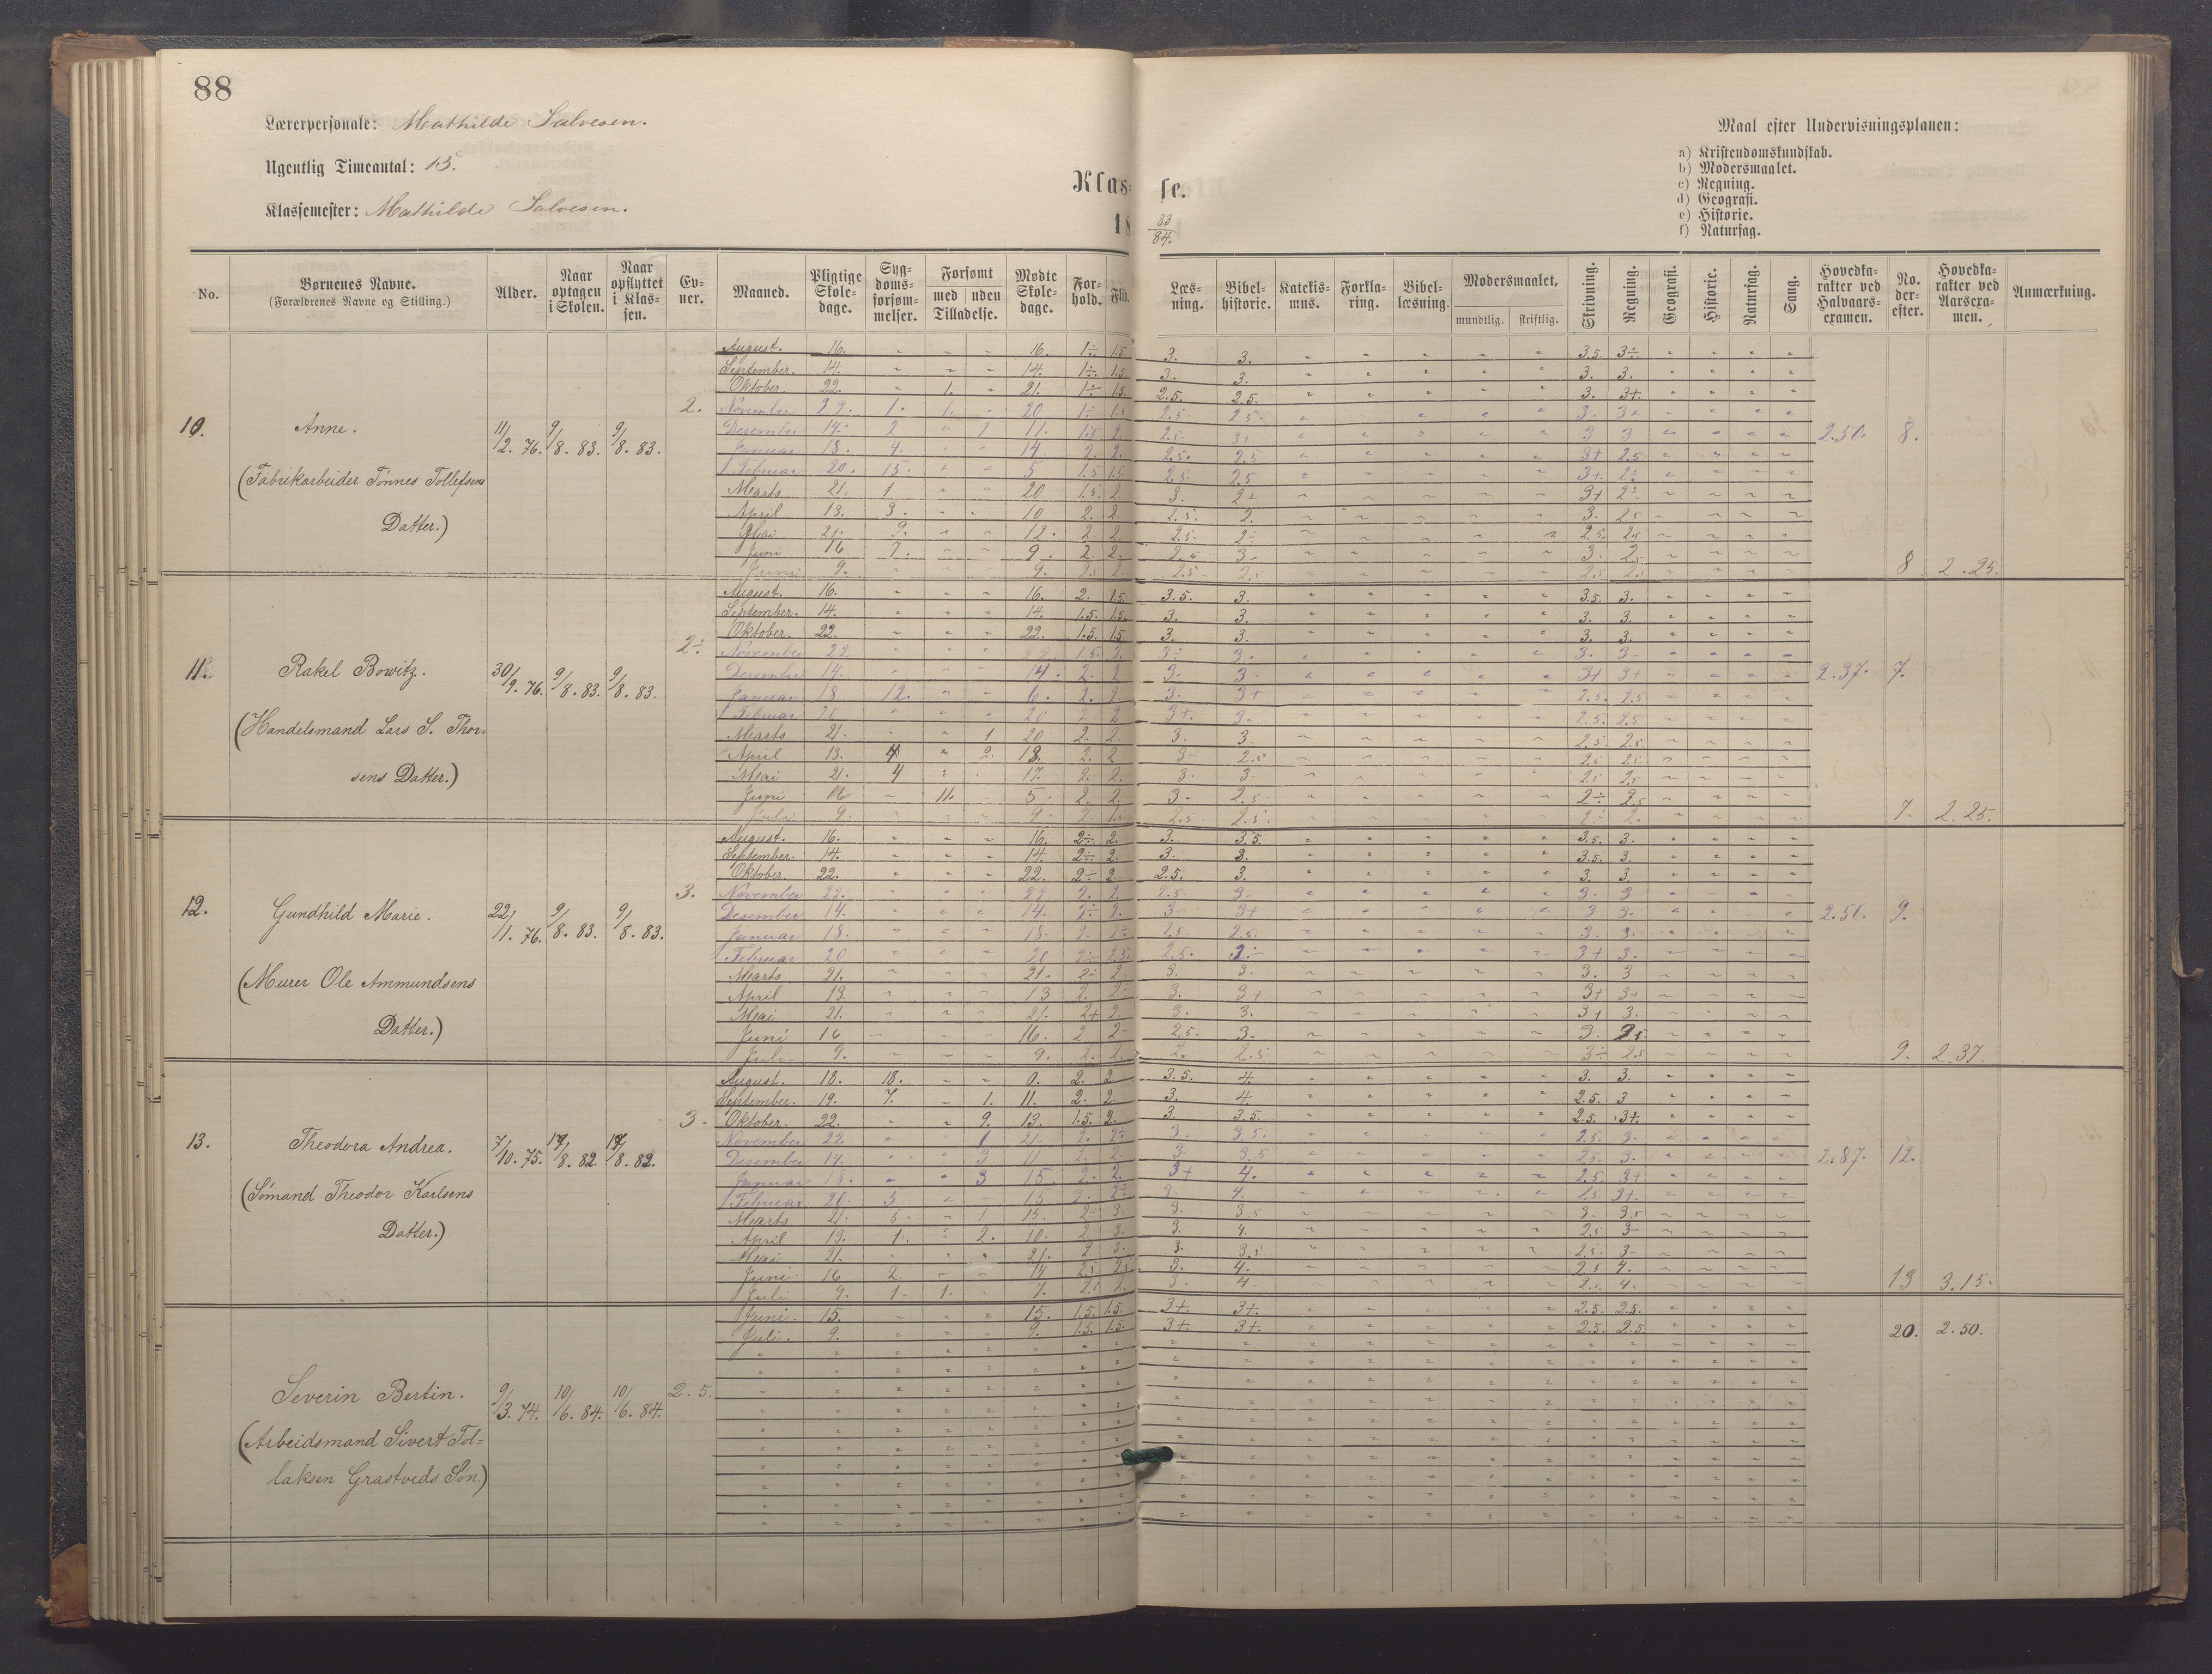 88
Lærerpersonale: Mathilde Salvesen.
Ugentlig Timeantal: 15.
Klassemester: Mathilde Salvesen.
Klasse.
18 83/84.
Maal efter Undervisningsplanen:
a) Kristendomskundskab.
b) Modersmaalet.
c) Regning.
d) Geografi.
e) Historie.
f) Naturfag.
No. Børnenes Navne. (Forældrenes Navne og Stilling.) Alder. Naar optagen i Skolen. Naar opflyttet i Klassen. Evner. Maaned. Pligtige Skoledage. Sygdomsforsømmelser. Forsømt med uden Tilladelse. Mødte Skoledage. Forhold. Flid. Læsning. Bibelhistorie. Katekismus. Forklaring. Bibellæsning. Modersmaalet, mundtlig. skriftlig. Skrivning. Regning. Geografi. Historie. Naturfag. Sang. Hovedkarakter ved Halvaarsexamen. No. derefter. Hovedkarakter ved Aarsexamen. Anmærkning.
10. Anne. 11/12. 76. 9/8. 83. 9/8. 83. 2. 2.50. 8.
(Fabrikarbeider Tønnes Tollefsens
Datter.)
August. 16. " " " 16. 1÷. 1.5. 3. 3. 3.5. 3÷.
September. 14. " " " 14. 1÷. 1.5 3. 3. 3. 3.
Oktober. 22. " 1. " 21. 1÷ 1.5. 2.5. 2.5. 3. 3+.
November 22. 1. 1. " 20 1÷ 2.5 2.5 3. 3+
Desember 14. 2 " 1 11. 1.5 2. 2.5. 3+ 3 3
Januar 18. 4. 14 2. 2. 2.5. 2.5 3+ 2.5
Februar 20. 15. 5 1.5 1.5 2.5 2.5 3+.
Marts 21. 1 20 1.5. 2. 3. 2+ 3+ 2÷
April 13. 3. 10 2. 2. 2.5. 2. 3. 2.5
Mai 21. 9. 12. 2. 2. 2.5. 2÷ 2.5. 2.5
Juni 16 7. 9. 2. 2. 3 3. 2.5
9. 9. 2.5 2. 2.5 2.5 2.5 2.5 8 2.25.
11. Rakel Bowitz. 30/9. 76. 9/8. 83. 9/8. 83. 2÷ 2.37. 7.
(Handelsmand Lars S. Thor=
sens Datter.)
August. 16. " " " 16. 2. 1.5. 3.5. 3. 3.5. 3.
September. 14. " " " 14. 1.5. 1.5. 3. 3. 3. 3.
Oktober. 22. " " " 22. 1.5. 1.5 3. 3. 3. 3.
November 22 22 1.5 2. 3÷ 3. 3. 3
Desember 14. 14. 2. 2 3. 3. 3+ 3+
Januar 18 12. 6. 2. 2. 3. 3+ 2.5. 2.5
Februar 20 20 2 2 3+. 3. 2.5. 2.5
Marts 21. 1 20 2. 2. 3. 3. 2.5. 2.5
April 13. 4 2. 2. 2 3 2.5 2.5 2.5
Mai 21. 4 17. 2. 2. 3. 3 2.5 2.5
Juni 16 11. 5. 2. 2. 3. 2.5 2÷ 2.5
Juli 9. 9. 2 2.5 2.5. 2. 7. 2.25.
12. Gundhild Marie. 22/11. 76. 9/8. 83. 9/8. 83. 3. 2.50. 9.
(Murer Ole Ammundsens
Datter.)
August. 16. " " " 16. 2÷ 2. 3. 3.5. 3.5. 3.
September. 14. " " " 14. 2÷ 2. 3. 3. 3.5. 3.
Oktober. 22. " " " 22. 2÷ 2. 2.5. 3. 3. 3.
November 22. 22 2. 2 2.5 3 3. 3
Desember 14. 14. 2÷ 2. 3. 3+ 3 3.
Januar 18. 18. 2. 2.5. 3. 3.
Februar 20 20 2÷ 2.5. 2.5. 3+ 3.
Marts 21. 21. 2÷ 2 3. 3. 3. 3
April 13. 13 2. 2÷ 3. 3+ 3+ 3+
Mai 21. 21. 2+ 2 3. 3. 3+ 3.
Juni 16 16. 2 2 2.5. 3. 3. 2.5.
Juli. 9. 9. 2. 2. 2. 2.5 3÷ 2.5 9. 2.37.
13. Theodora Andrea. 7/10. 75. 8. 82. 8. 82. 3. 2.87. 12.
(Sømand Theodor Karlsens
Datter.)
August. 18. 18. " " 0. 2. 2. 3.5. 4. 3. 3.
September. 19. 7. " 1. 11. 2. 2. 3. 4. 2.5. 3
Oktober. 22. " " 9. 13. 1.5. 2. 3. 3.5. 2.5. 3+.
November 22. 1 21. 2. 2÷ 3. 3.5. 2.5. 3.
Desember 14. 3 11 2. 2. 3. 3.5 2.5 3.
Januar 18. 3 15. 2. 2. 3+ 4. 2.5. 3+
Februar 20. 5 15 2. 2÷ 3. 4. 2.5. 3+.
Marts 21. 5. 1 15. 2÷ 3. 3. 3.5 3. 3.5
April 13. 1. 2. 10. 2 3. 3. 4 2.5 3
Mai 21. 21. 2 3. 3. 3.5 2.5. 3
Juni 16 2. 14 2.5 2.5 3. 4. 2.5 4.
Juli 9. 1. 1. 7. 2.5 2. 3. 4 4. 13 3.15.
Severin Bertin. 9/3. 74. 10/6. 84. 10/6. 84. 2.5.
(Arbeidsmand Sivert Tol=
laksen Grastveds Søn.)
Juni. 15. " " " 15. 1.5. 1.5. 3+. 3+. 2.5. 2.5.
Juli. 9. " " " 9. 1.5. 1.5. 3+. 3+. 2.5. 2.5. 20. 2.50.